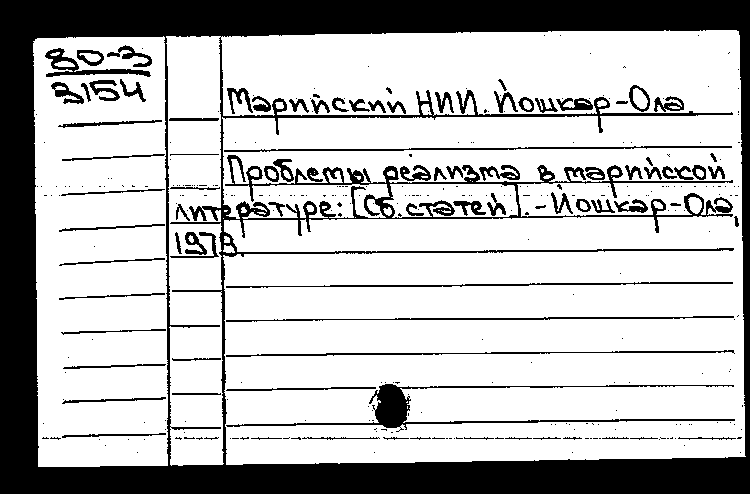 80-3
3154
Марийский НИИ. Йошкар-Ола.
Проблемы реализма в марийской
литературе: [Сб. статей]. - Йошкар-Ола,
1979.